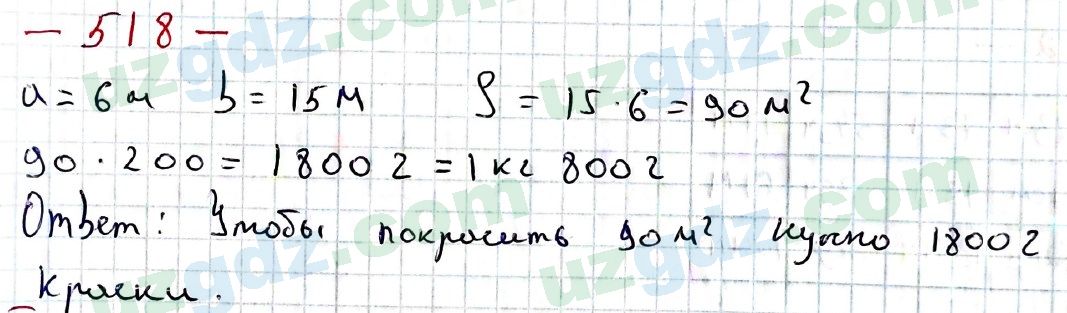 — 518 —
a = 6 м b = 15 м S = 15 · 6 = 90 м²
90 · 200 = 1800 г = 1 кг 800 г
Ответ: Чтобы покрасить 90 м² нужно 1800 г
краски.